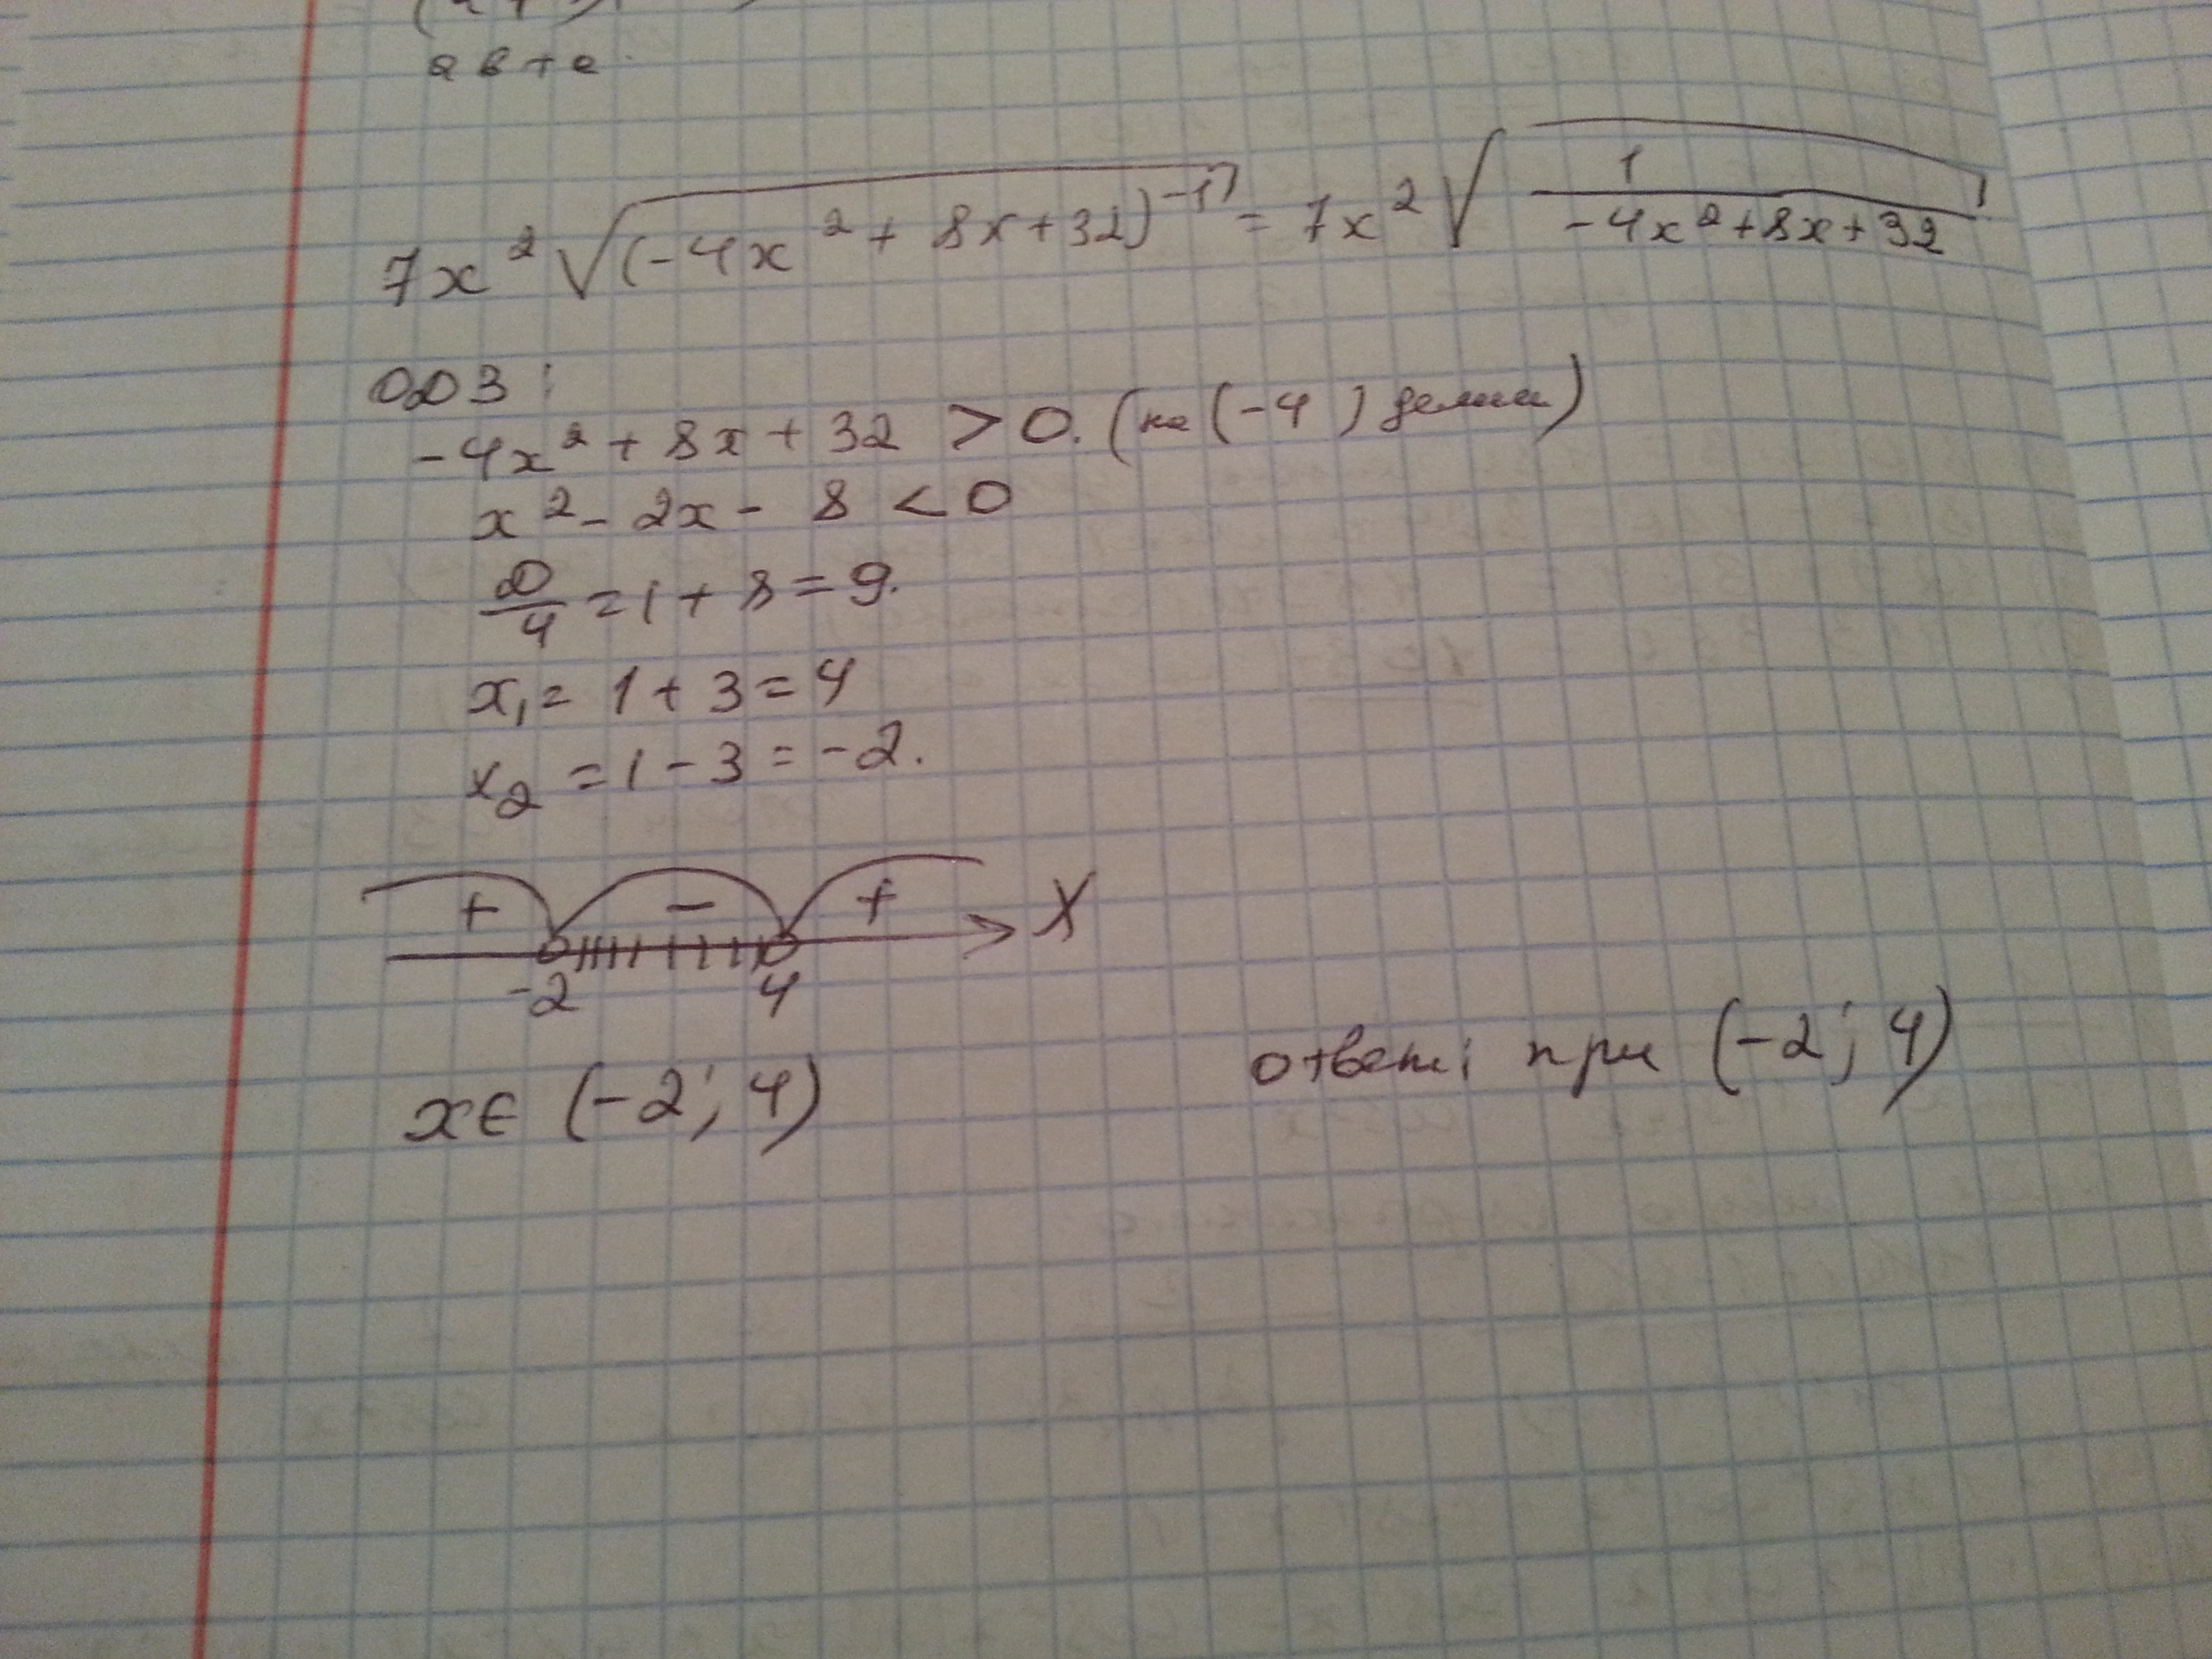 ав+а
7x²√(-4x²+8x+32)⁻¹ = 7x²√1/(-4x²+8x+32)
ОДЗ:
-4x²+8x+32 > 0. (на (-4) делим)
x²-2x-8 < 0
D/4 = 1+8=9.
x₁= 1+3=4
x₂ =1-3=-2.
+ - + X
-2 4
x∈ (-2; 4)
ответ: при (-2; 4)